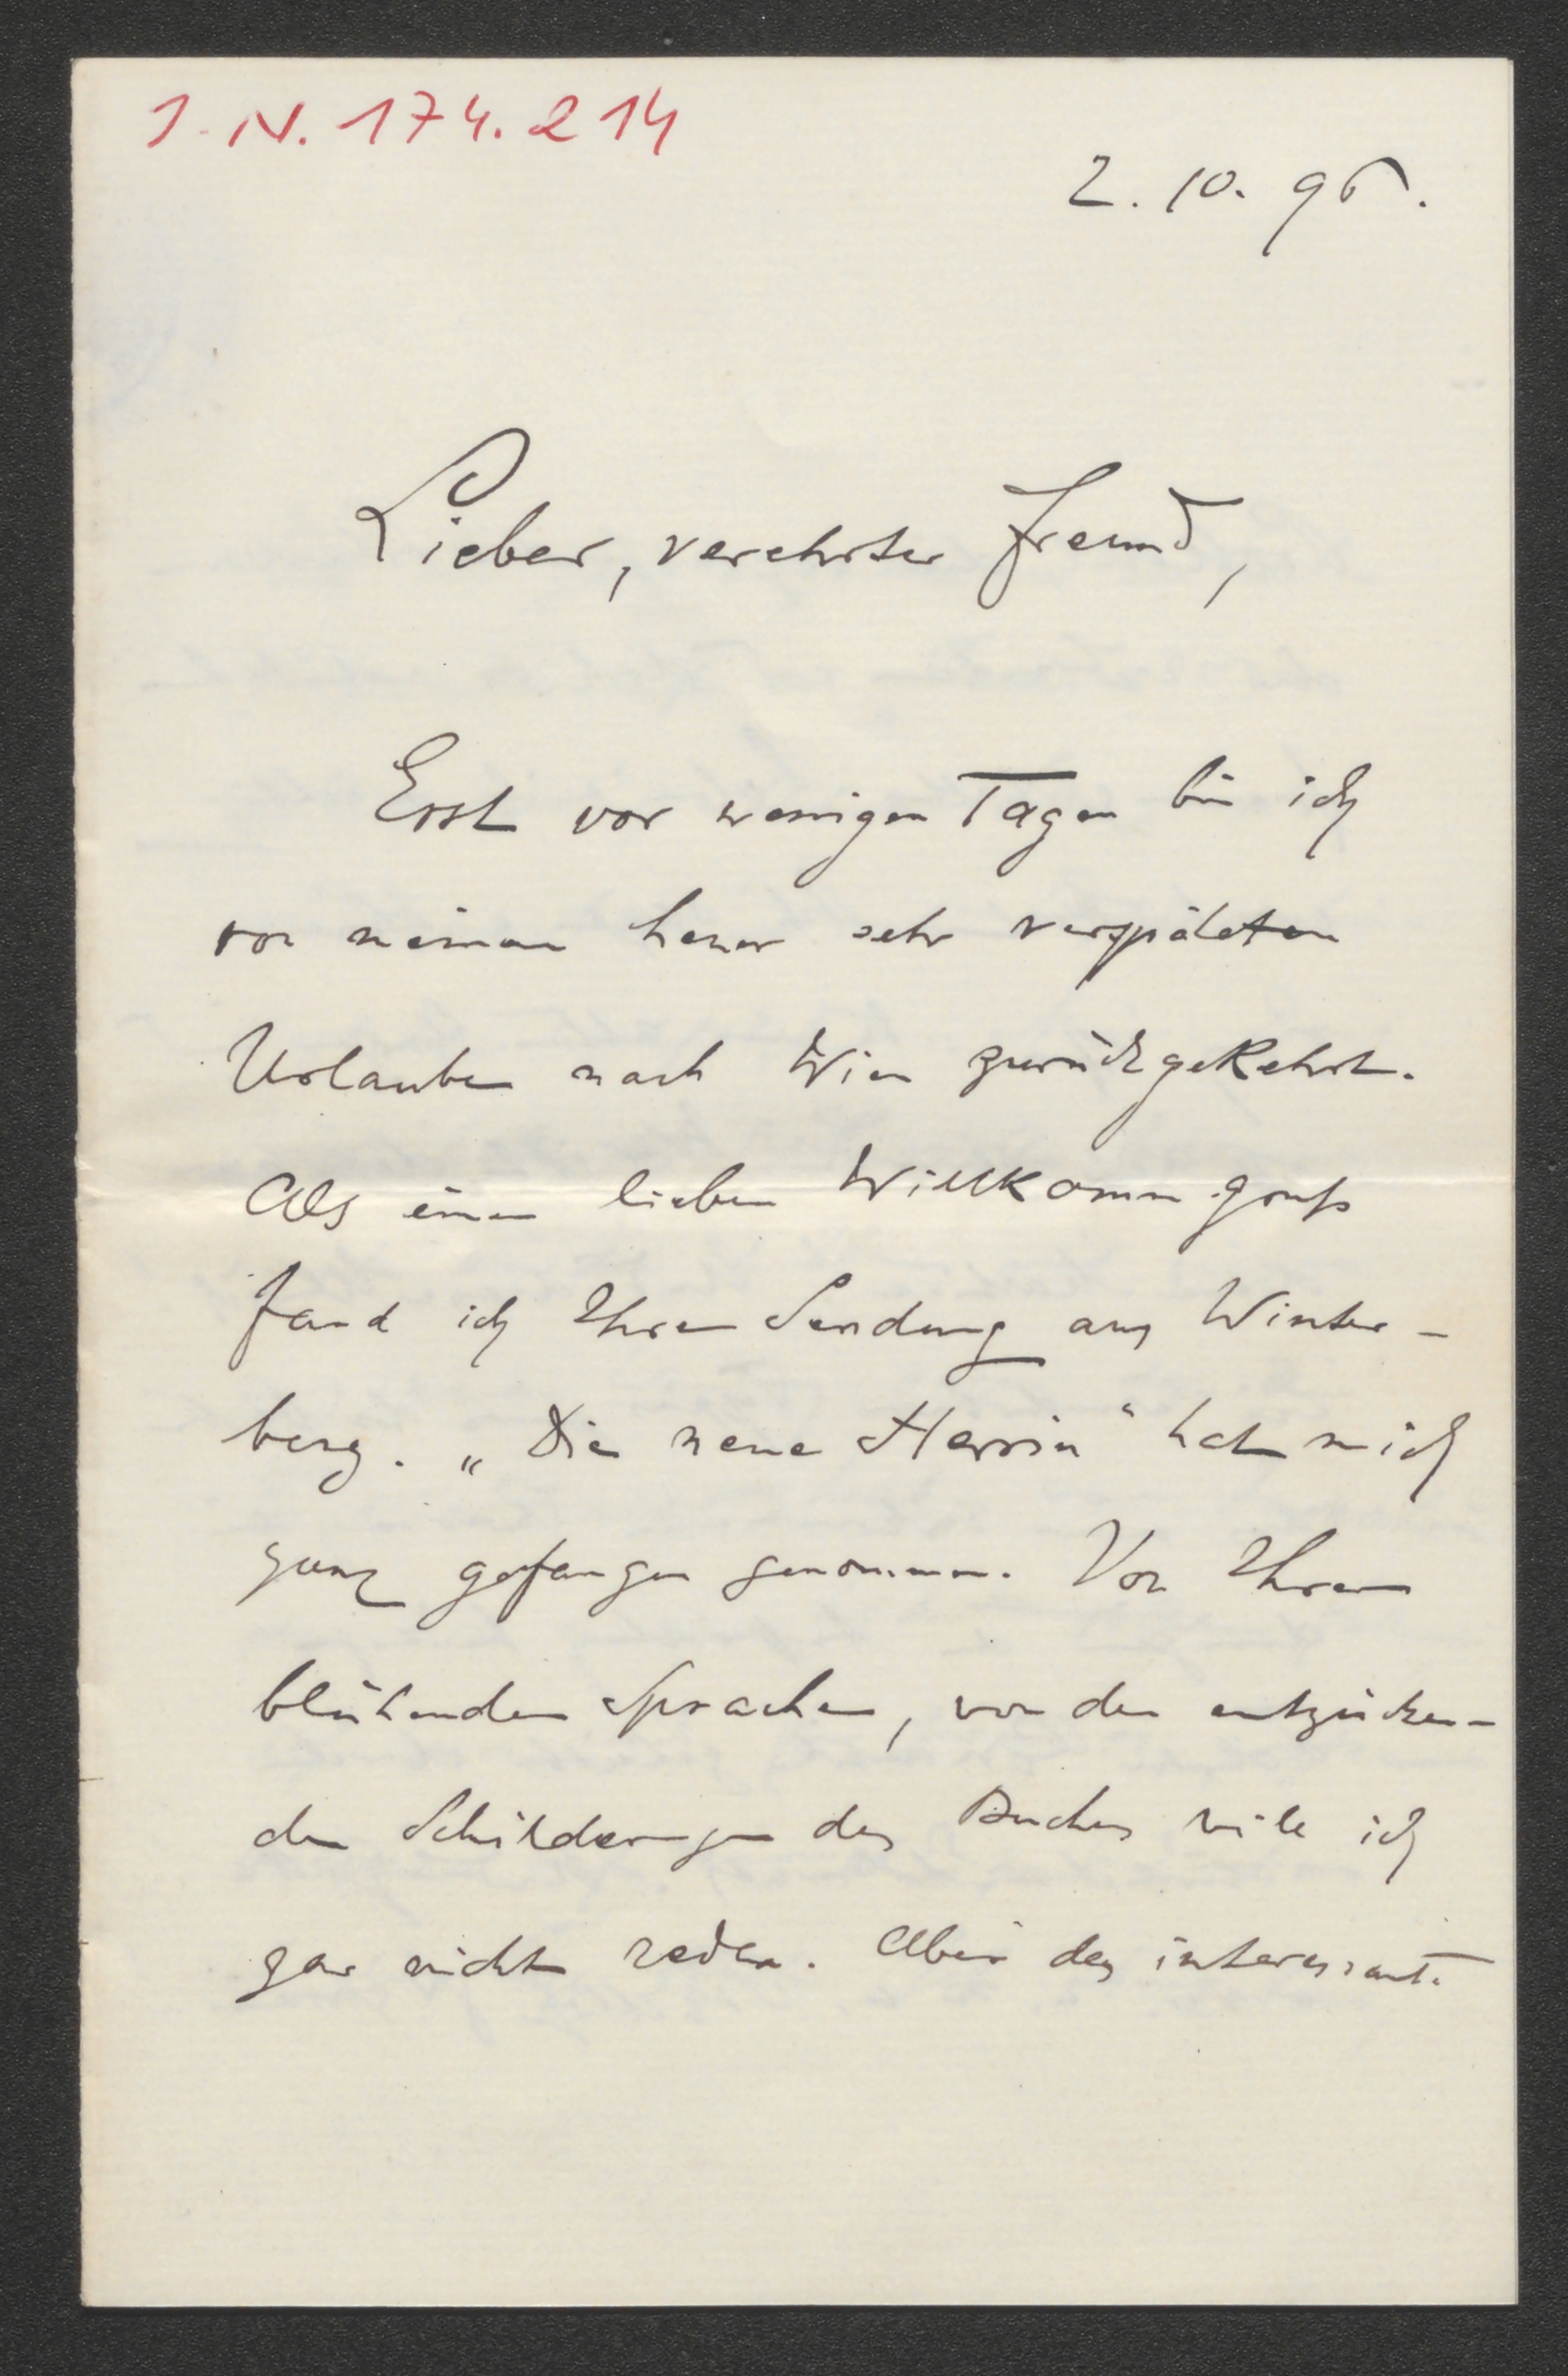 I. N. 174.214
2. 10. 95.
Lieber, verehrter Freund,
Erst vor wenigen Tagen bin ich
von meinem heuer sehr verspäteten
Urlaube nach Wien zurückgekehrt.
Als einen lieben Willkommgruß
fand ich Ihre Sendung aus Winter-
berg. „Die neue Herrin“ hat mich
ganz gefangen genommen. Von Ihrer
blühenden Sprache, von den entzücken-
den Schilderungen des Buches will ich
gar nicht reden. Aber das interessante